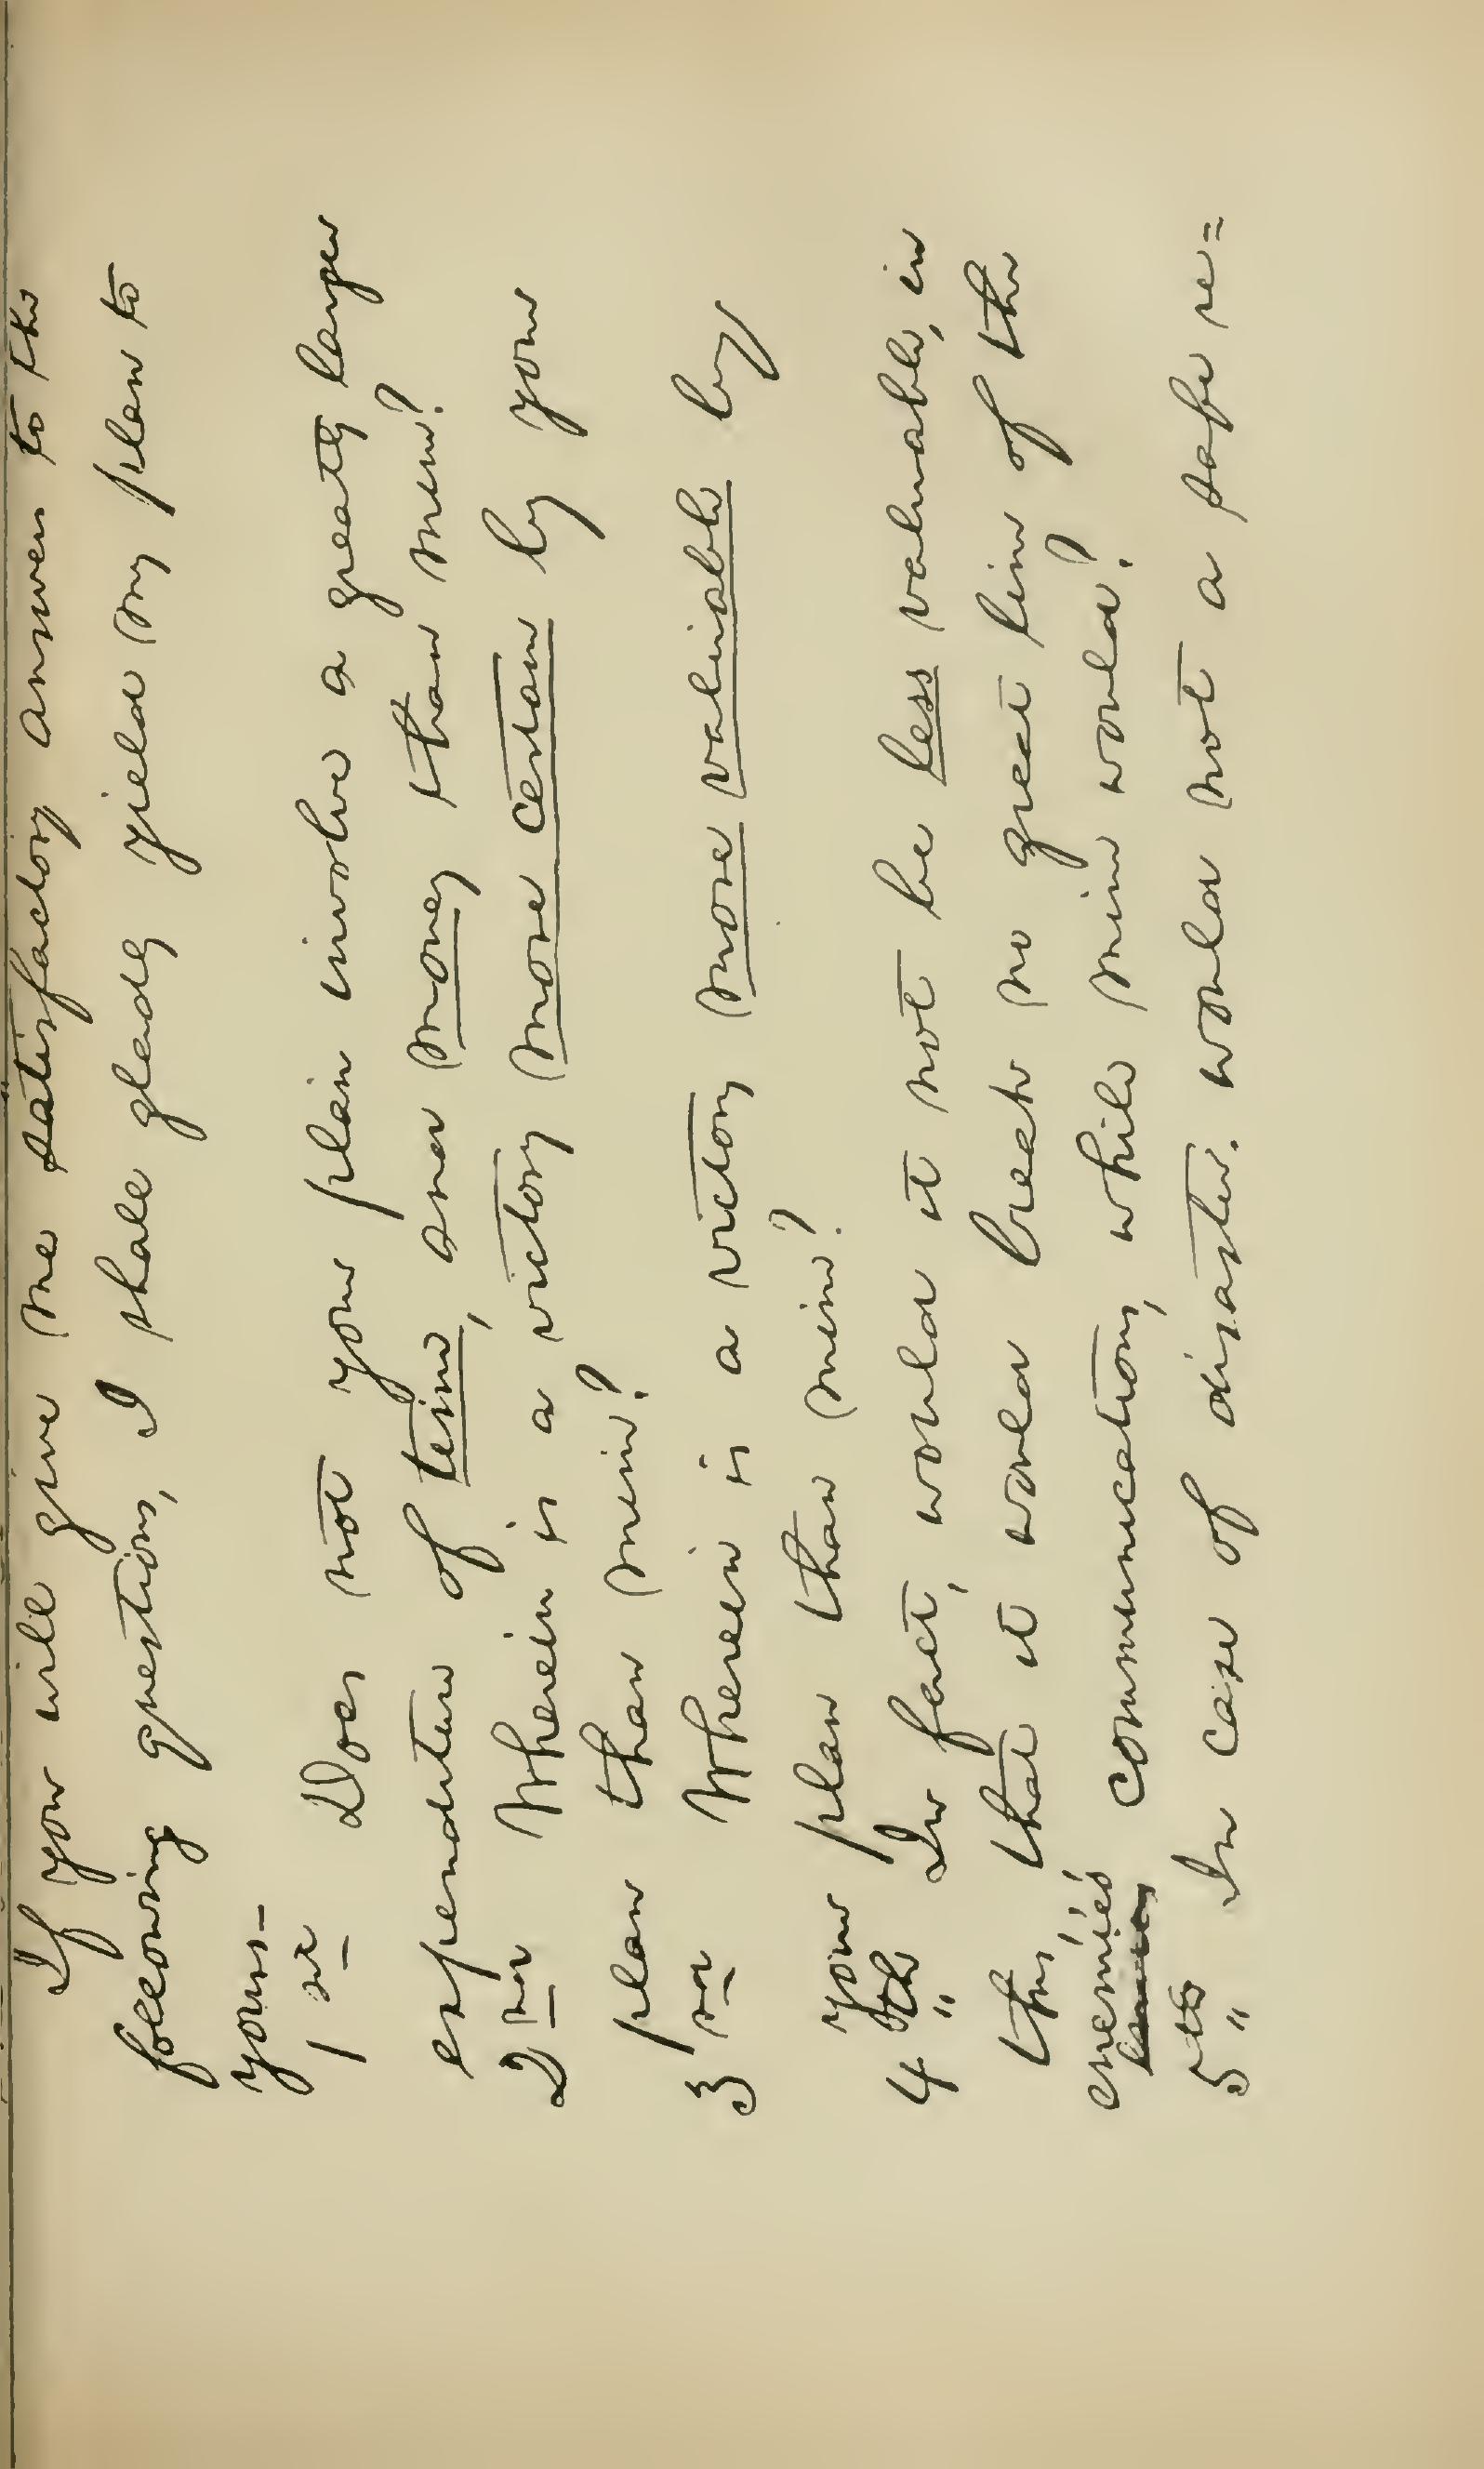 If you will give me satisfactory answers to the
following questions, I shall gladly yield my plan to
yours—
1st Does not your plan involve a greatly larger
expenditure of time, and money than mine?
2nd Wherein is a victory more certain by your
plan than mine?
3rd Wherein is a victory more valuable by
your plan than mine?
4th In fact, would it not be less valuable, in
this, that it would break no great line of the
enemie's communications, while mine would?
5th In case of disaster, would not a safe re=